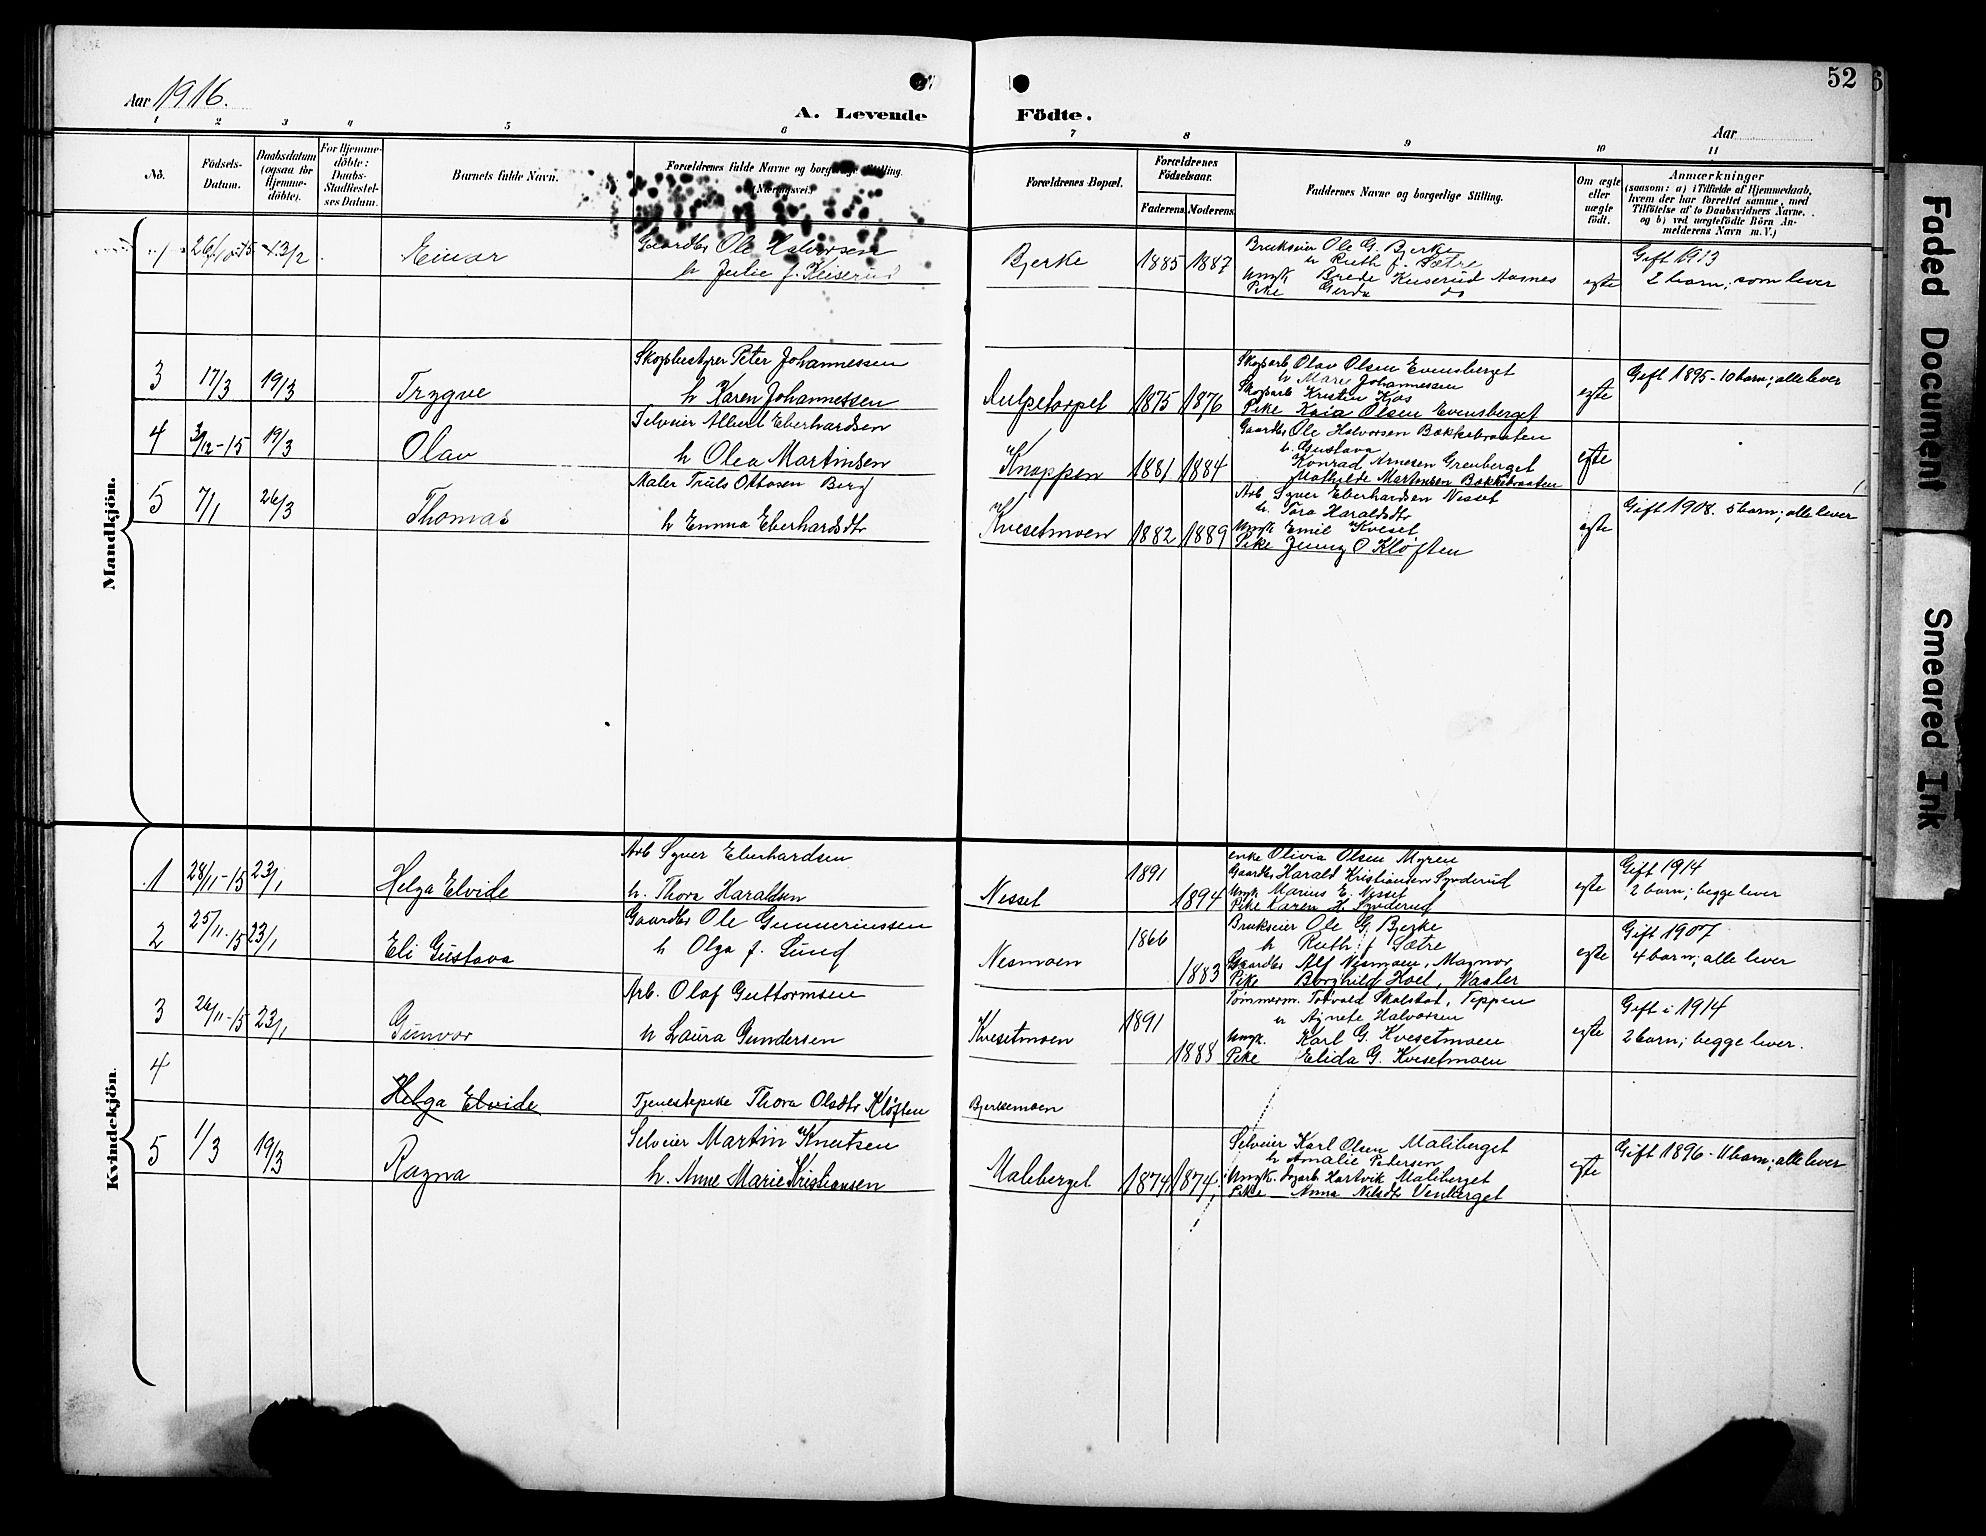 52
Aar 1916.
A. Levende Födte.
Aar
1 2 3 4 5 6 7 8 9 10 11
No.
Födsels-
Datum.
Daabsdatum
(ogsaa for
Hjemme-
döbte).
For Hjemme-
döbte:
Daabs-
Stadfæstel-
ses Datum.
Barnets fulde Navn.
Forældrenes fulde Navne og borgerlige Stilling.
(Næringsvei.)
Forældrenes Bopæl.
Forældrenes
Födselsaar.
Faderens. Moderens.
Faddernes Navne og borgerlige Stilling.
Om ægte
eller
uægte
födt.
Anmærkninger
(saasom: a) i Tilfælde af Hjemmedaab,
hvem der har forrettet samme, med
Tilföielse af to Daabsvidners Navne,
og b) ved uægtefödte Börn An-
melderens Navn m. V.)
Mandkjön.
13/2
Einar
Gaardbr Ole Halvorsen
h Julie f. Keiserud
Bjerke
1885 1887
Brukseier Ole G. Bjerke
h Ruth f. Sætre
Ungk Brede Keiserud Aasnes
Pike Gerda do
egte
Gift 1913
2 barn; som lever
3 17/3 19/3
Trygve
Skogbestyrer Peter Johannessen
h Karen Johannessen
1875 1876
Skogsarb Olav Olsen Evensberget
h Marie Johannessen
Skogsarb Kristen Kjos
Pike Kaia Olsen Evensberget
egte
Gift 1895 - 10 barn; alle lever
4 3/12-15 19/3
Olav
Selveier Albert Eberhardsen
h Olea Martinsen
Knappen
1881 1884
Gaardbr Ole Halvorsen Bakkebraaten
h. Gustava
Konrad Arnesen Grenberget
Mathilde Martinsen Bakkebraaten
egte
5 7/1 26/3
Thomas
Maler Truls Ottosen Berg
h Emma Eberhardsdtr
Kvesetmoen
1882 1889
Arb. Syver Eberhardsen Nesset
h. Tora Haraldsdtr
Ungk Emil Kveset
Pike Jenny O Kløften
egte
Gift 1908. 5 barn; alle lever
Kvindekjön.
1 28/11-15 23/1
Helga Elvide
Arb Syver Eberhardsen
h. Thora Haraldsen
Nesset
1891
1894
enke Olivia Olsen Myren
Gaardbr Harald Kristiansen Synderud
Ungk Marius E. Nesset
Pike Karen H Synderud
egte
Gift 1914
2 barn; begge lever
2 25/11-15 23/1
Eli Gustava
Gaardbr Ole Gunneriussen
h Olga f. Lund
Nesmoen
1866
1883
Brukseier Ole G. Bjerke
h Ruth f Sætre
Gaardbr Alf Nesmoen, Magnor
Pike Borghild Hoel, Vaaler
egte
Gift 1907
4 barn; alle lever
3 26/11-15 23/1
Gunvor
Arb. Olaf Guttormsen
h Laura Gundersen
Kvesetmoen
1891
1888
Tømmerm. Torvald Skalstat, Teppen
h Agnete Halvorsen
Ungk. Karl G. Kvesetmoen
Pike Elida G. Kvesetmoen
egte
Gift i 1914
2 barn; begge lever.
4
Helga Elvide
Tjenestepike Thora Olsdtr Kløften
Bjerkemoen
5 1/3 19/3
Ragna
Selveier Martin Knutsen
h. Anne Marie Kristiansen
Maliberget
1874 1874
Selveier Karl Olsen Maliberget
h Amalie Petersen
Ungk. Hartvik Maliberget
Pike Anna Nilsdtr Venberget
egte
Gift 1896 - 11 barn; alle lever
Faded Document
Smeared Ink